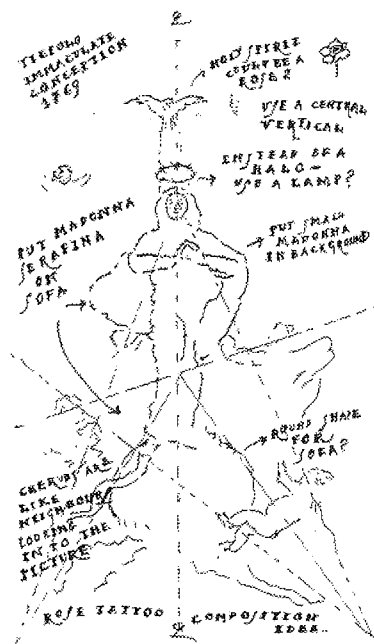 TIEPOLO
IMMACULATE
CONCEPTION
1769
HOLY SPIRIT
COULD BE A
ROSE?
USE A CENTRAL
VERTICAL
INSTEAD OF A
HALO -
USE A LAMP?
PUT MADONNA
SERAFINA
ON
SOFA
PUT SMALL
MADONNA
IN BACKGROUND
ROUND SHAPE
FOR
SOFA?
CHERUBS ARE
LIKE
NEIGHBOURS
LOOKING
IN TO THE
PICTURE
ROSE TATTOO COMPOSITION
IDEA..